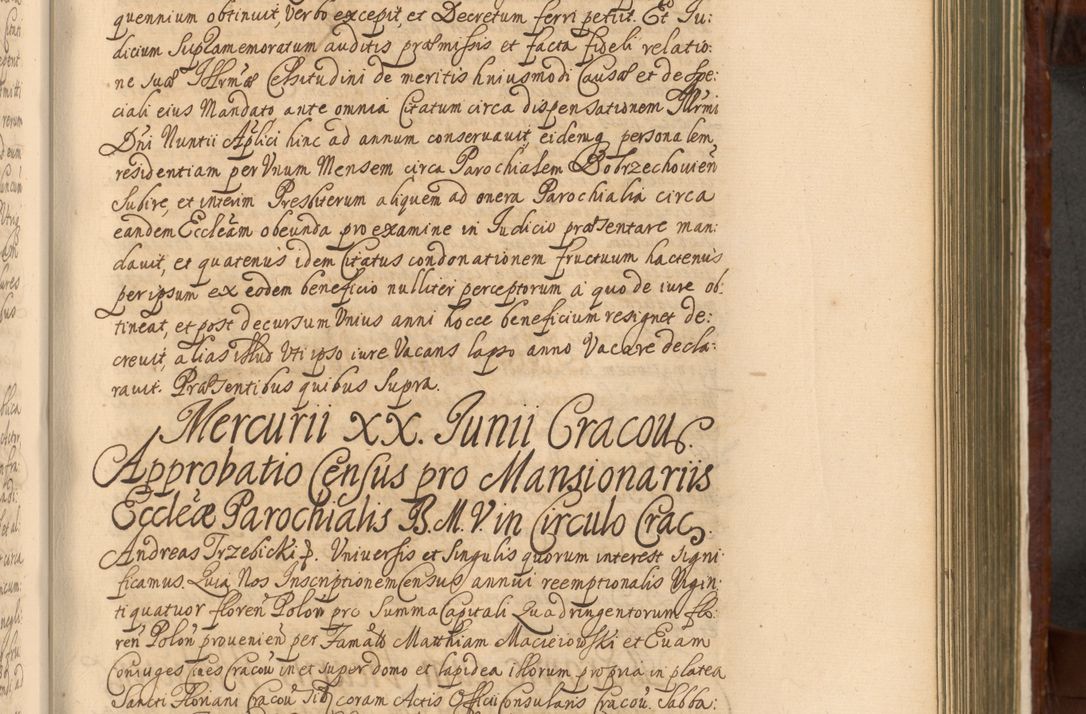 quennium obtinuit, verbo excepit, et Decretum ferri petiit. Et Ju:
dicium suplamemoratum auditis præmissis et facta fideli relatio:
ne suæ Illrmæ Celsitudini de meritis huiusmodi Causæ et de spe:
ciali eius Mandato ante omnia Citatum circa dispensationem Illrmi
Dni Nuntii Aplici hinc ad annum conseruauit, eidemq personalem
residentiam per Vnum Mensem circa Parochialem Dobrzechouien
subire, et interim Presbiterum aliquem ad onera Parochialia circa
eandem Eccleam obeunda pro examine in Judicio præsentare man:
dauit, et quatenus idem Citatus condonationem fructuum hactenus
per ipsum ex eodem beneficio nulliter perceptorum a quo de iure ob:
tineat, et post decursum Vnius anni hocce beneficium resignet de:
creuit, alias illud Vti ipso iure Vacans lapso anno Vacare decla:
rauit. Præsentibus quibus supra.
Mercurii XX. Junii Cracou.
Approbatio Census pro Mansionariis
Eccleæ Parochialis B. M. V. in Circulo Crac.
Andreas Trzebicki. Vniuersis et singulis quorum interest signi
ficamus Quia Nos Inscriptionem Census annui reemptionalis Vigin:
ti quatuor floren Polon pro summa Capitali Quadringentorum flo:
ren Polon prouenien per Famatt Matthiam Macieiowski et Euam
Coniuges Ciues Cracou in et super domo et lapidea illorum propria in platea
Sancti Floriani Cracou sit coram Actis Officii Consularis Cracou. Sabba: